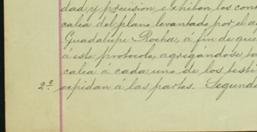 dad y precision, exhiben los con
calca del plano levantado por el
Guadalupe Rocha, á fin de que
á este protocolo, agregándose
calca á cada uno de los testi
2ª expidan á las partes. Segunda